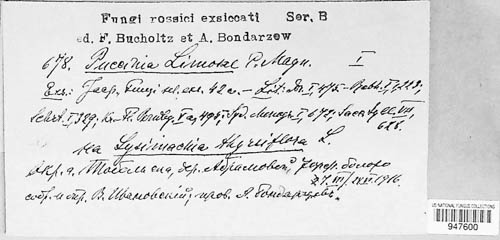 Fungi rossici exsiccati Ser. B
ed. F. Bucholtz et A. Bondarzew
678. Puccinia Limosae P. Magn. I
Exs.: Jaap, Fungi sel. exs. 42a. – Lit.:
Schrt. I, 329; Syd. Monogr. I, 678; Sacc. Syll. VII,
628.
на Lysimachia thyrsiflora L.
окр. г. Тобольска, дер. болото
VI. 1916.
собр. и опр. В. Ивановский; пров. А. Бондарцевъ.
US NATIONAL FUNGUS COLLECTIONS
947600